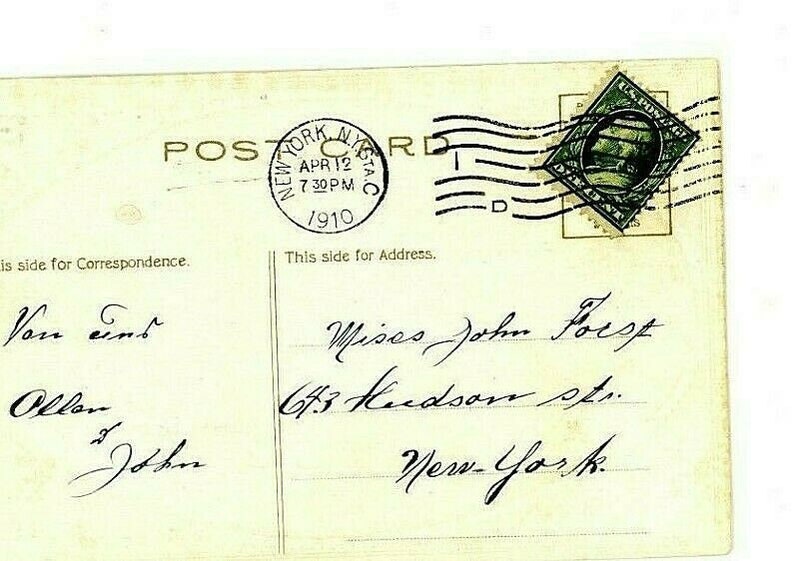 POST CARD
NEW YORK, N.Y. STA. C
APR 12
7 30 PM
1910
D
U.S. POSTAGE
is side for Correspondence.
Von uns
Ollen
John
This side for Address.
Mises John Forst
643 Hudson str.
New-York.